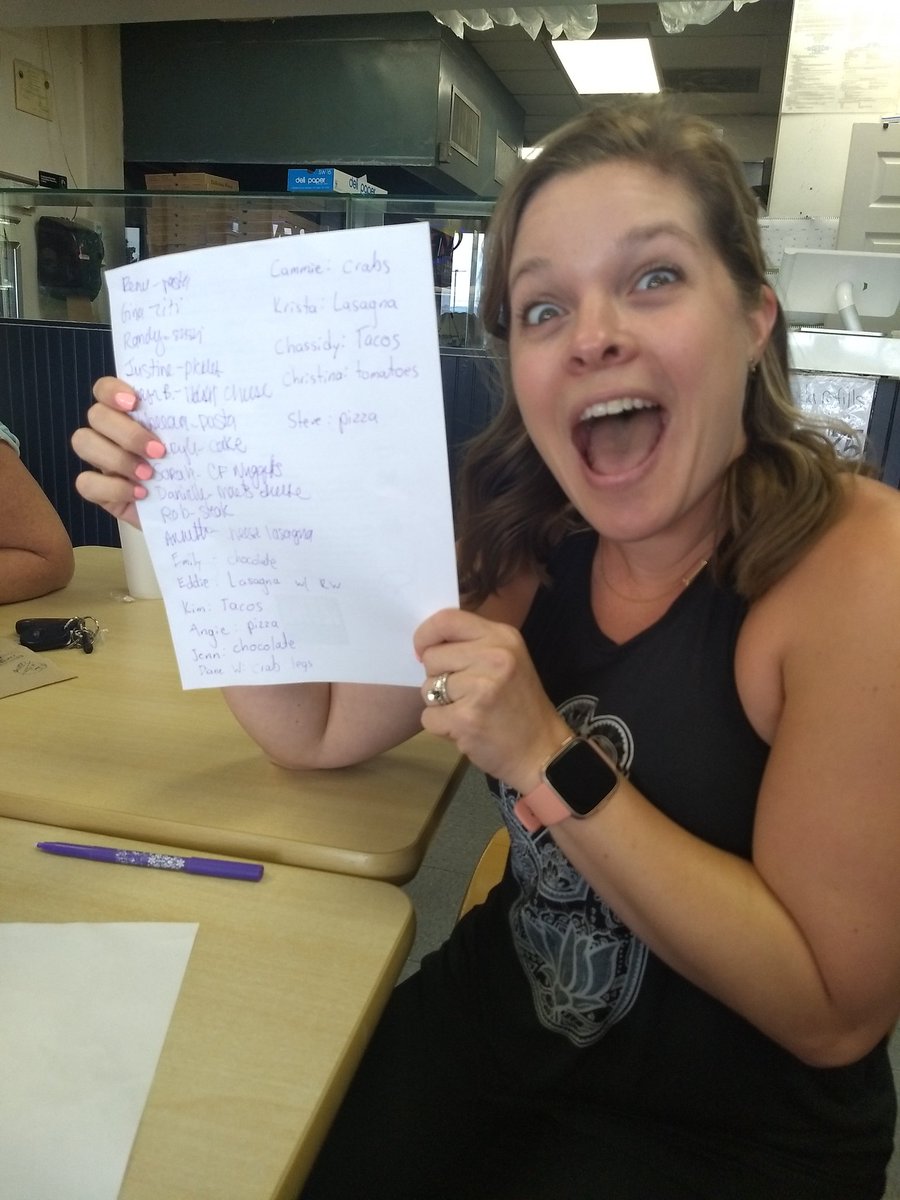 deli paper
deli paper
pasta
Gina ziti
Randy-
Justine-pickles
cheese
pasta
cake
Sarah- CF Nuggets
Danielle- cheese
Rob- steak
Annette- lasagna
Emily: chocolate
Eddie: Lasagna w/ RW
Kim: Tacos
Angie: pizza
Jenn: chocolate
W: crab legs
Cammie: crabs
Krista: Lasagna
Chassidy: Tacos
Christina: tomatoes
Steve: pizza